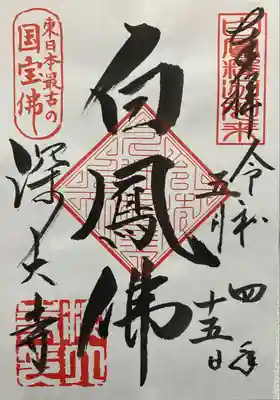 奉拝
令和四年
五月十五日
白鳳佛
東日本最古の
国宝佛
深大寺